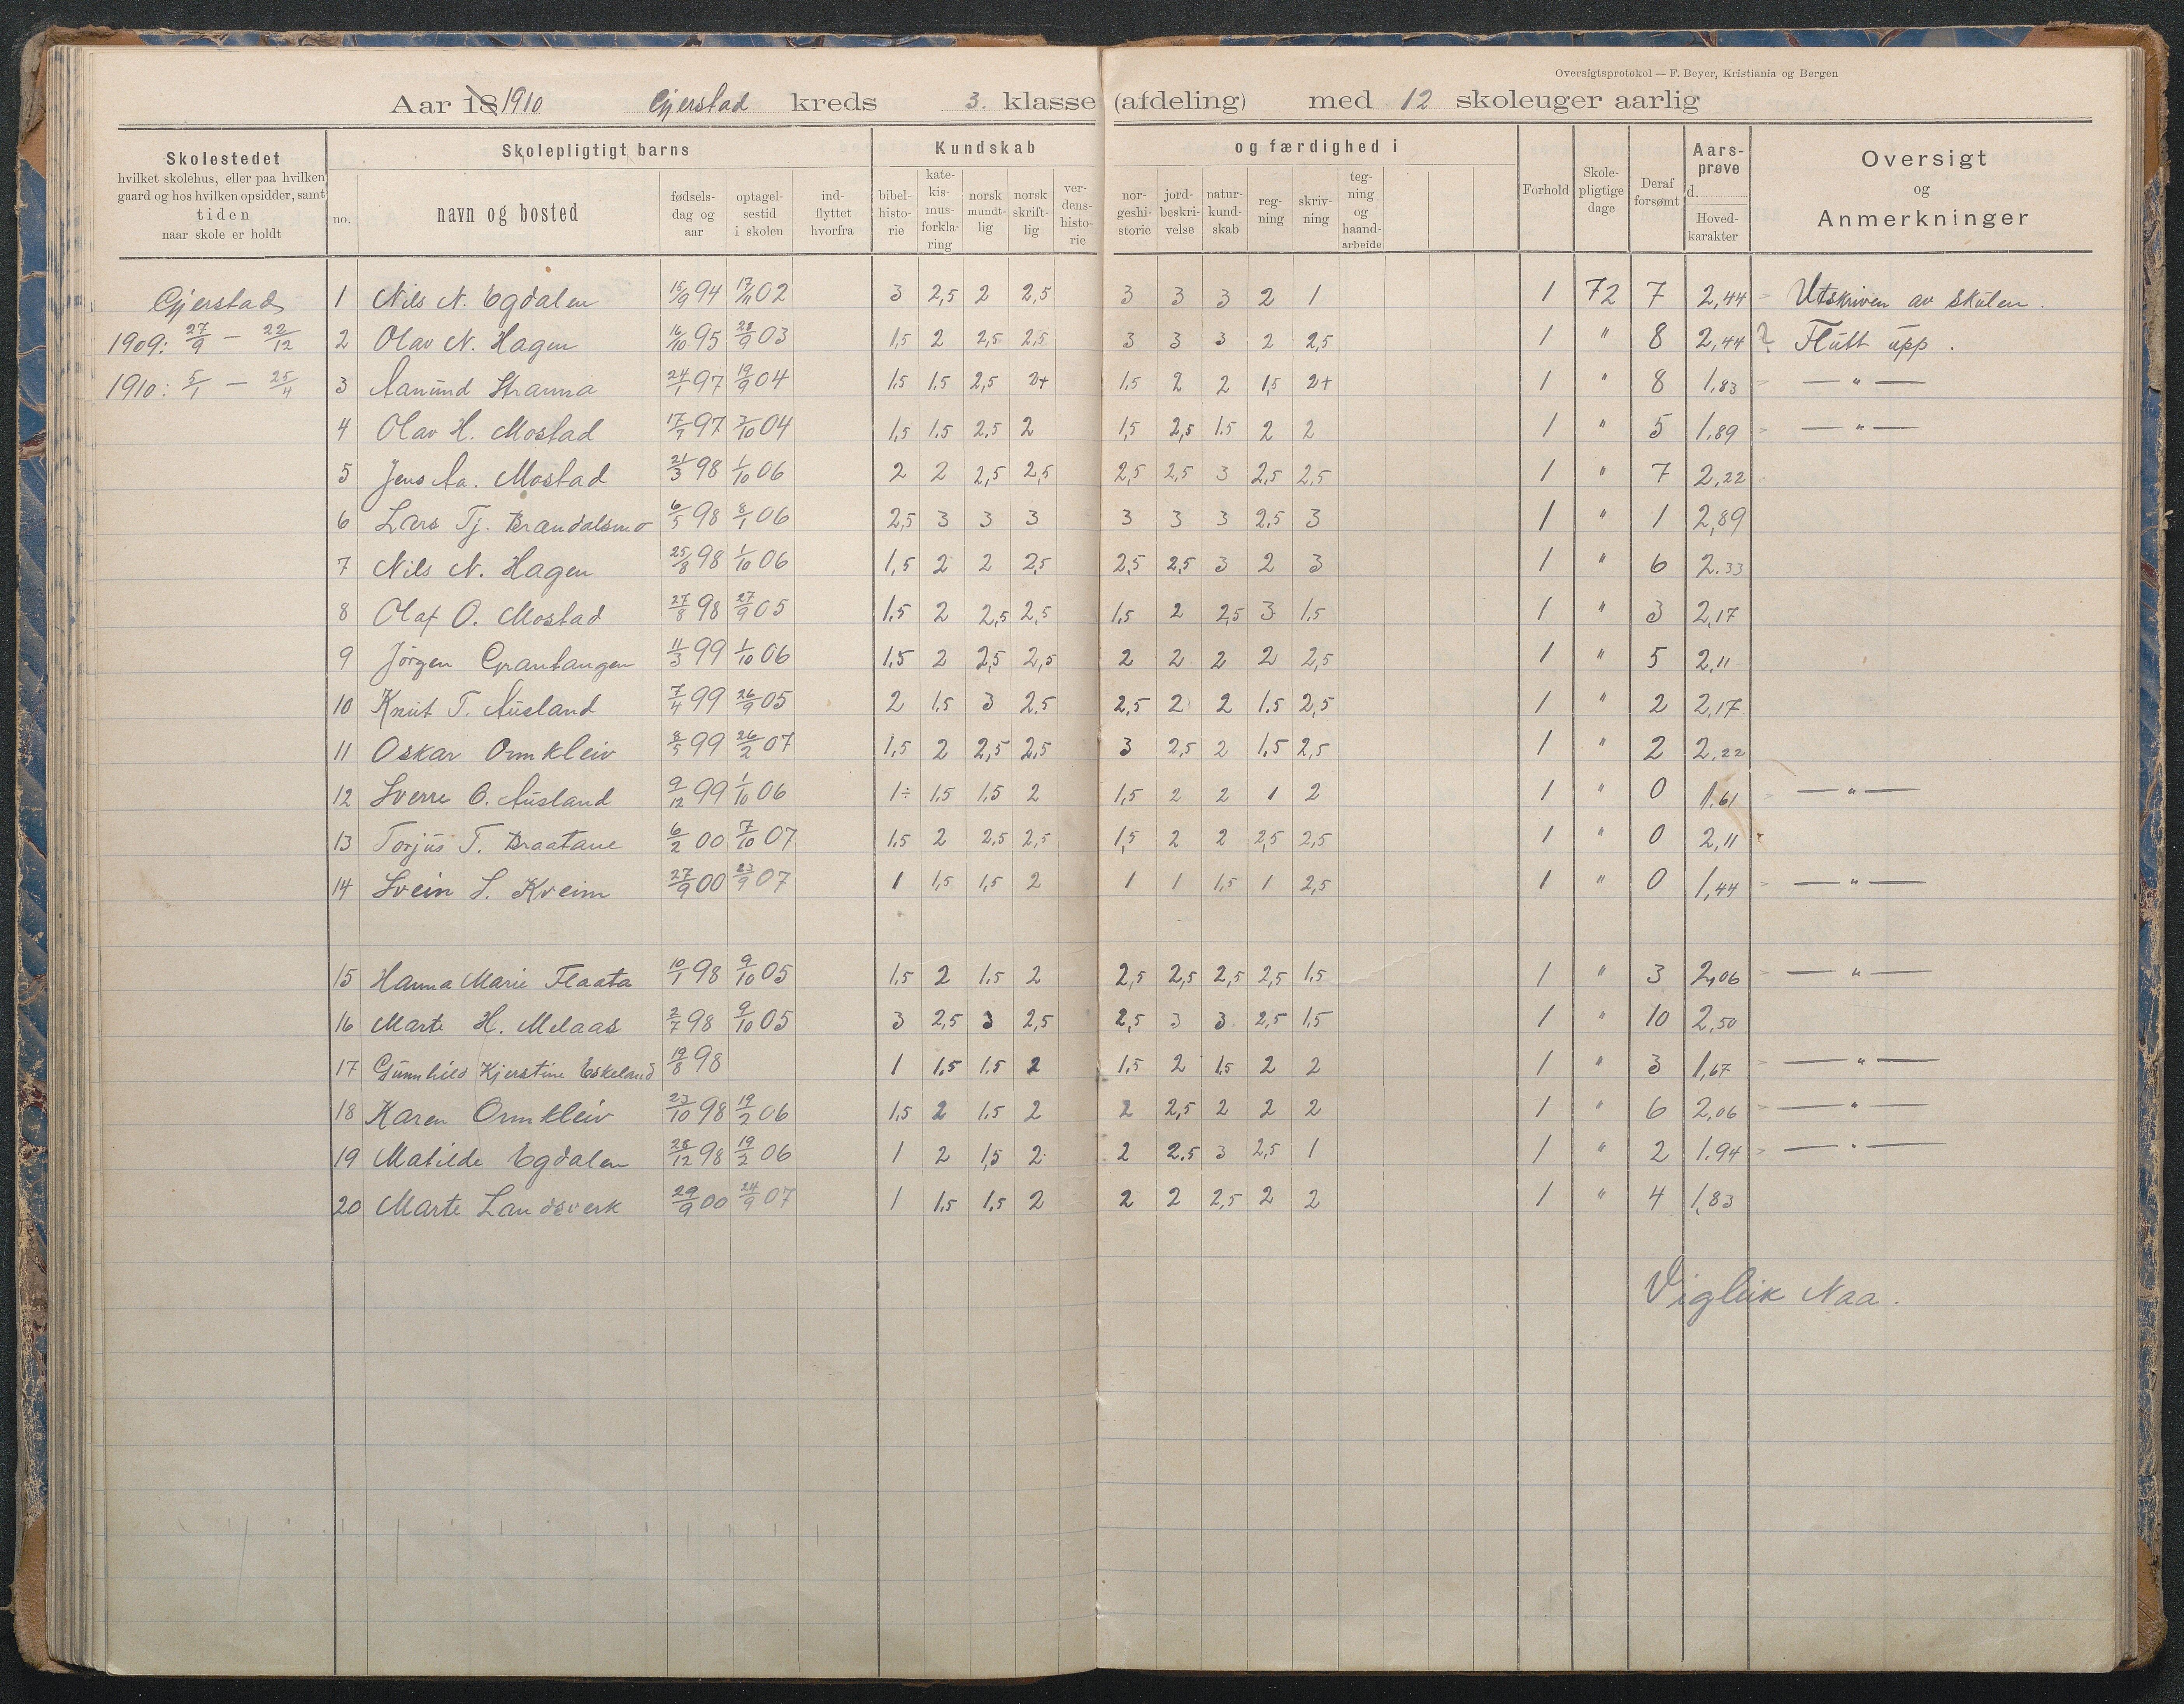 Oversigtsprotokol — F. Beyer, Kristiania og Bergen
Aar 18 1910 Gjerstad kreds 3. klasse (afdeling) med 12 skoleuger aarlig
Skolestedet
hvilket skolehus, eller paa hvilken
gaard og hos hvilken opsidder, samt
tiden
naar skole er holdt
Skolepligtigt barns
no.
navn og bosted
fødsels-
dag og
aar
optagel-
sestid
i skolen
ind-
flyttet
hvorfra
Kundskab
bibel-
histo-
rie
kate-
kis-
mus-
forkla-
ring
norsk
mundt-
lig
norsk
skrift-
lig
ver-
dens-
histo-
rie
og færdighed i
nor-
geshi-
storie
jord-
beskri-
velse
natur-
kund-
skab
reg-
ning
skriv-
ning
teg-
ning
og
haand-
arbeide
Forhold
Skole-
pligtige
dage
Deraf
forsømt
Aars-
prøve
d.
Hoved-
karakter
Oversigt
og
Anmerkninger
Gjerstad 1 Nils N. Egdalen 15/9 94 17/11 02 3 2,5 2 2,5 3 3 3 2 1 1 72 7 2,44 Utskriven av skulen.
1909: 27/9 — 22/12 2 Olav N. Hagen 16/10 95 28/9 03 1,5 2 2,5 2,5 3 3 3 2 2,5 1 " 8 2,44 ? Flutt upp.
1910: 5/1 — 25/4 3 Aanund Stranna 24/1 97 19/9 04 1,5 1,5 2,5 2+ 1,5 2 2 1,5 2+ 1 " 8 1,83 — " —
4 Olav H. Mostad 17/7 97 3/10 04 1,5 1,5 2,5 2 1,5 2,5 1,5 2 2 1 " 5 1,89 — " —
5 Jens Aa. Mostad 21/3 98 1/10 06 2 2 2,5 2,5 2,5 2,5 3 2,5 2,5 1 " 7 2,22
6 Lars Tj. Brandalsmo 6/5 98 8/1 06 2,5 3 3 3 3 3 3 2,5 3 1 " 1 2,89
7 Nils N. Hagen 25/8 98 1/10 06 1,5 2 2 2,5 2,5 2,5 3 2 3 1 " 6 2.33
8 Olaf O. Mostad 27/8 98 27/9 05 1,5 2 2,5 2,5 1,5 2 2,5 3 1,5 1 " 3 2,17
9 Jörgen Grantangen 11/3 99 1/10 06 1,5 2 2,5 2,5 2 2 2 2 2,5 1 " 5 2,11
10 Knut T. Ausland 7/4 99 26/9 05 2 1,5 3 2,5 2,5 2 2 1.5 2,5 1 " 2 2,17
11 Oskar Ormkleiv 8/5 99 26/2 07 1,5 2 2,5 2,5 3 2,5 2 1,5 2,5 1 " 2 2,22
12 Sverre O. Ausland 9/12 99 1/10 06 1÷ 1,5 1,5 2 1,5 2 2 1 2 1 " 0 1,61 — " —
13 Torjus T. Braatane 6/2 00 7/10 07 1,5 2 2,5 2,5 1,5 2 2 2,5 2,5 1 " 0 2,11
14 Svein S. Kveim 27/9 00 23/9 07 1 1,5 1,5 2 1 1 1,5 1 2,5 1 " 0 1,44 — " —
15 Hanna Marie Flaata 10/1 98 9/10 05 1,5 2 1,5 2 2,5 2,5 2,5 2,5 1,5 1 " 3 2,06 — " —
16 Marte H. Melaas 2/7 98 9/10 05 3 2,5 3 2,5 2,5 3 3 2,5 1,5 1 " 10 2,50
17 Gunnhild Kjerstine Eskeland 19/8 98 1 1,5 1.5 2 1,5 2 1,5 2 2 1 " 3 1,67 — " —
18 Karen Ormkleiv 23/10 98 19/2 06 1,5 2 1,5 2 2 2,5 2 2 2 1 " 6 2,06 — " —
19 Matilde Egdalen 28/12 98 19/2 06 1 2 1,5 2 2 2.5 3 2,5 1 1 " 2 1.94 — " —
20 Marte Landsverk 29/9 00 24/9 07 1 1,5 1,5 2 2 2 2,5 2 2 1 " 4 1,83
Vigleik Naa.